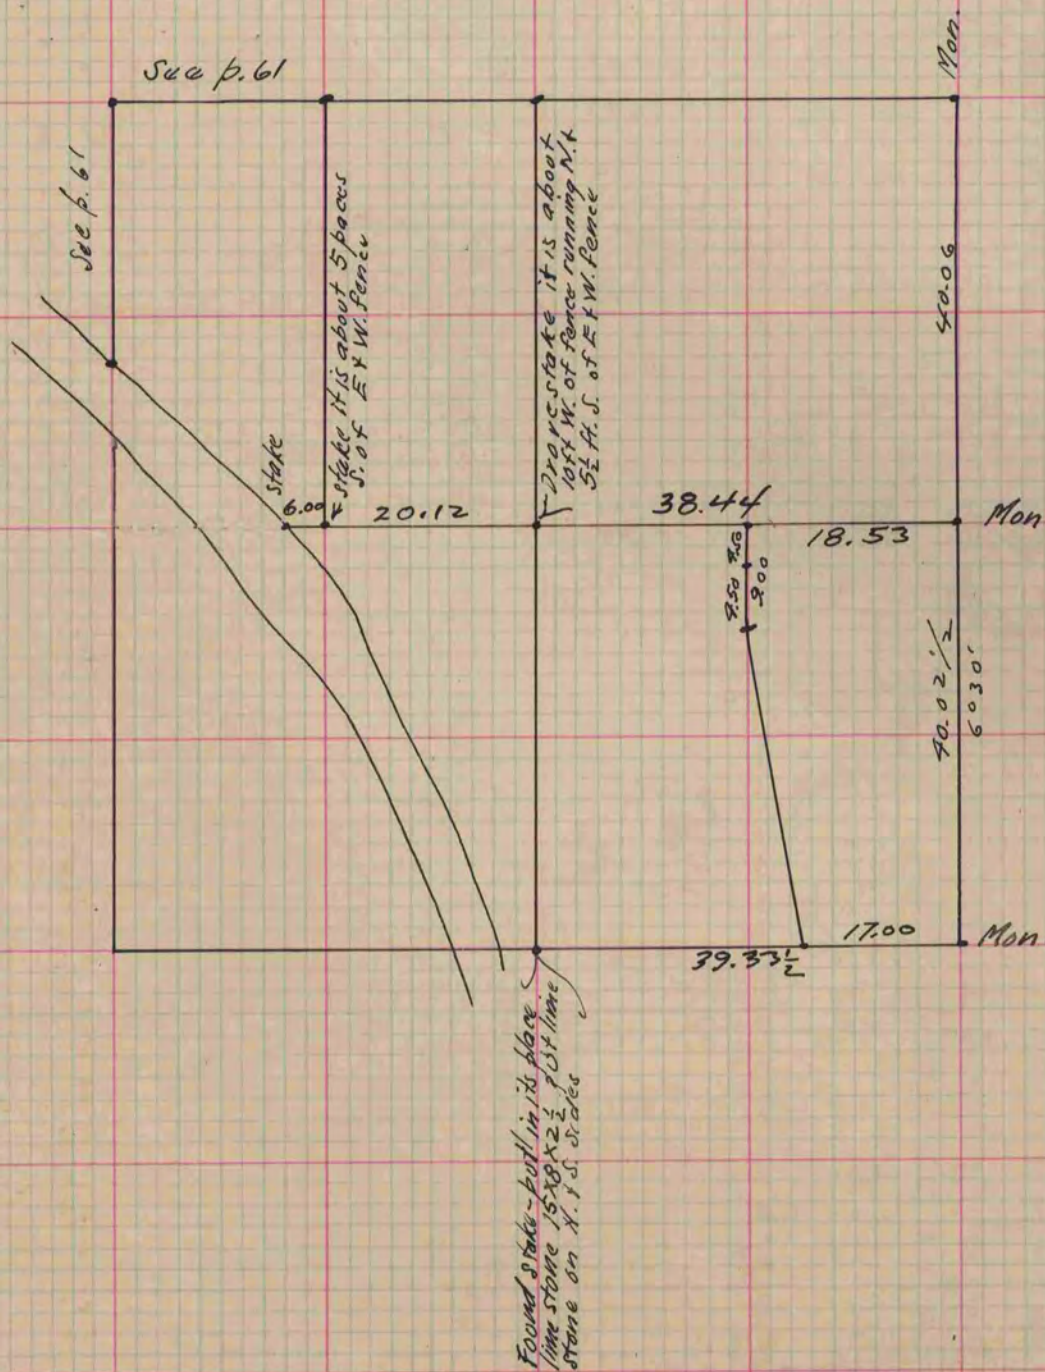 See p. 61
Mon.
See p. 61
stake it is about 5 paces
S. of E & W. fence
Drove stake it is about
10 ft W. of fence running N. &
5½ ft. S. of E & W. fence
40.06
stake
6.00
20.12
38.44
18.53
Mon
9.50
9.00
40.02½
6°30'
17.00
Mon
39.33½
Found stake - put in its place
lime stone 15x8x2½ put lime
stone on N. & S. sides